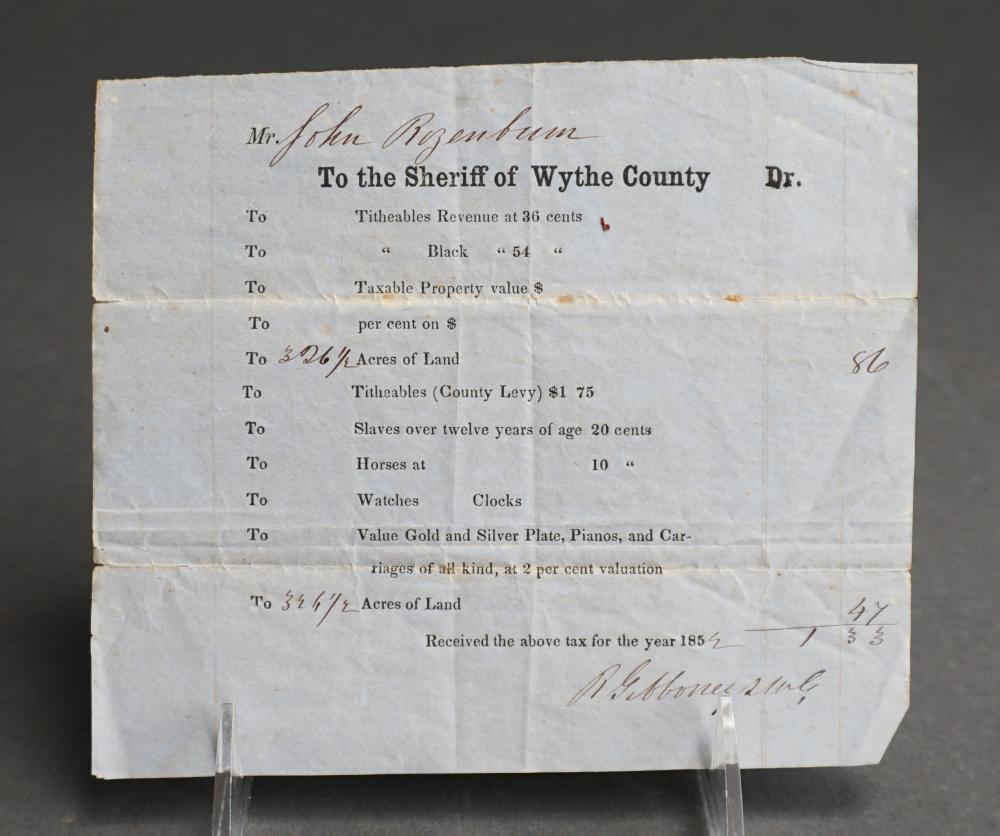 Mr. John Rozenbum
To the Sheriff of Wythe County Dr.
To Titheables Revenue at 36 cents
To “ Black “ 54 “
To Taxable Property value $
To per cent on $
To 326 1/2 Acres of Land 86
To Titheables (County Levy) $1 75
To Slaves over twelve years of age 20 cents
To Horses at 10 “
To Watches Clocks
To Value Gold and Silver Plate, Pianos, and Car-
riages of all kind, at 2 per cent valuation
To 326 1/2 Acres of Land 47
Received the above tax for the year 185 1 33
R Gibboney